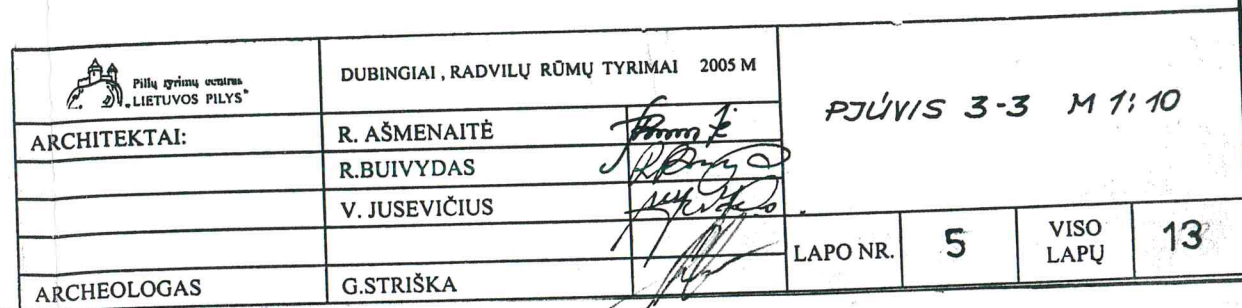 Pilių tyrimų centras
„LIETUVOS PILYS"
DUBINGIAI , RADVILŲ RŪMŲ TYRIMAI 2005 M
ARCHITEKTAI:
R. AŠMENAITĖ
R.BUIVYDAS
V. JUSEVIČIUS
ARCHEOLOGAS
G.STRIŠKA
PJŪVIS 3-3 M 1:10
LAPO NR.
5
VISO
LAPŲ
13